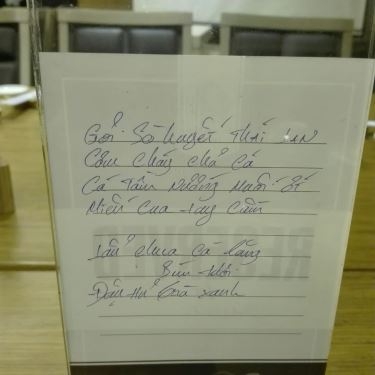 Gỏi Sò huyết Thái Lan
Cơm cháy chả cá
Cá Tầm Nướng Muối ớt
Miến Cua tay cầm
Lẩu chua cá lăng
Bún tươi
Đậu hủ trà xanh